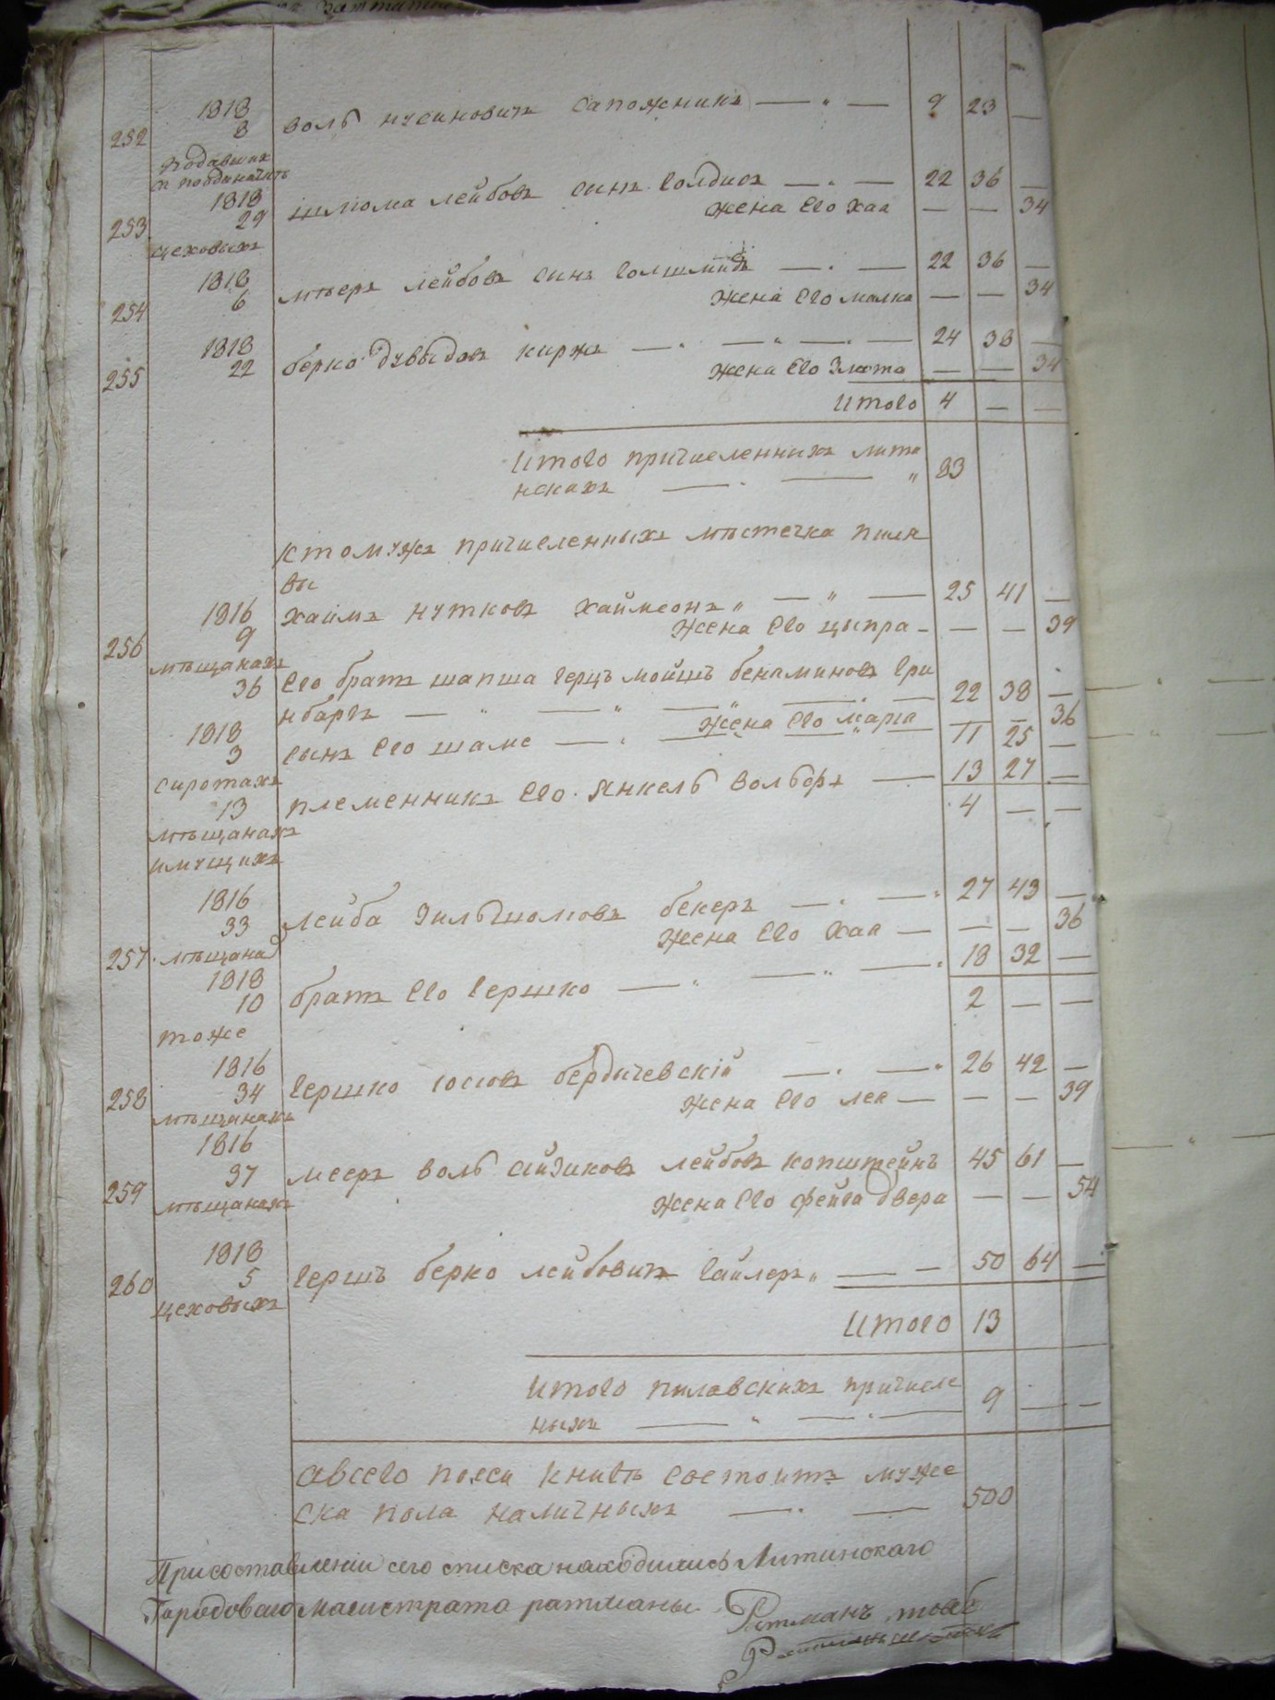 1818
252 8 воль нусиновичъ сапожникъ — „ — 9 23 —
подавших
1818
253 29 шлюма лейбовъ синъ голдисъ — . — 22 36 —
жена его хая — — 34
цеховыхъ
1818
254 6 мъеръ лейбовъ синъ голшмидъ — . — 22 36 —
жена его малка — — 34
1818
255 22 берко дувыдовъ киржа — . — „ — . — 24 38 —
жена его Злота — — 34
Итого 4 — —
Итого причиеленнихъ лити
нскихъ — . — „ 83
Ктомужъ причиеленныхъ мѣстечка пиля
вы
1816
256 9 хаимъ нутковъ хаймеонъ „ — „ — 25 41 —
жена его ципра — — — 39
мѣщанахъ
36 его братъ шапша герцъ мойшъ бенѧминовъ гри
нбаргъ — „ — „ — „ — . — 22 38 —
жена его марія — — 36
1818
3 сынъ его шамс — . — 11 25 —
сиротахъ
13 племенникъ его Янкель вольфъ — 13 27 —
4 — —
мѣщанахъ
имущихъ
1816
33 лейба Зильшомовъ бекеръ — . — „ 27 43 —
жена его Хая — — — 36
257 мѣщанах
1818
10 братъ его гершко — „ — „ — . 18 32 —
2 — —
тоже
1816
258 34 гершко иосіовъ бердичевскій — . — „ 26 42 —
жена его лея — — — 39
мѣщанахъ
1816
259 37 мееръ воль айзиковъ лейбовъ копштейнъ 45 61 —
жена его фейга двера — — 54
мѣщанахъ
1818
260 5 гершъ берко лейбовичъ гайлеръ „ — — 50 64 —
цеховыхъ
Итого 13
Итого пилавскихъ причиеле
ныхъ — „ — . — 9 — —
авсего посеи книгѣ состоитъ муже
ска пола наличныхъ — . — 500
При составленіи сего списка находились Литинскаго
Городоваго Магистрата ратманы
Ратманъ
Ратманъ